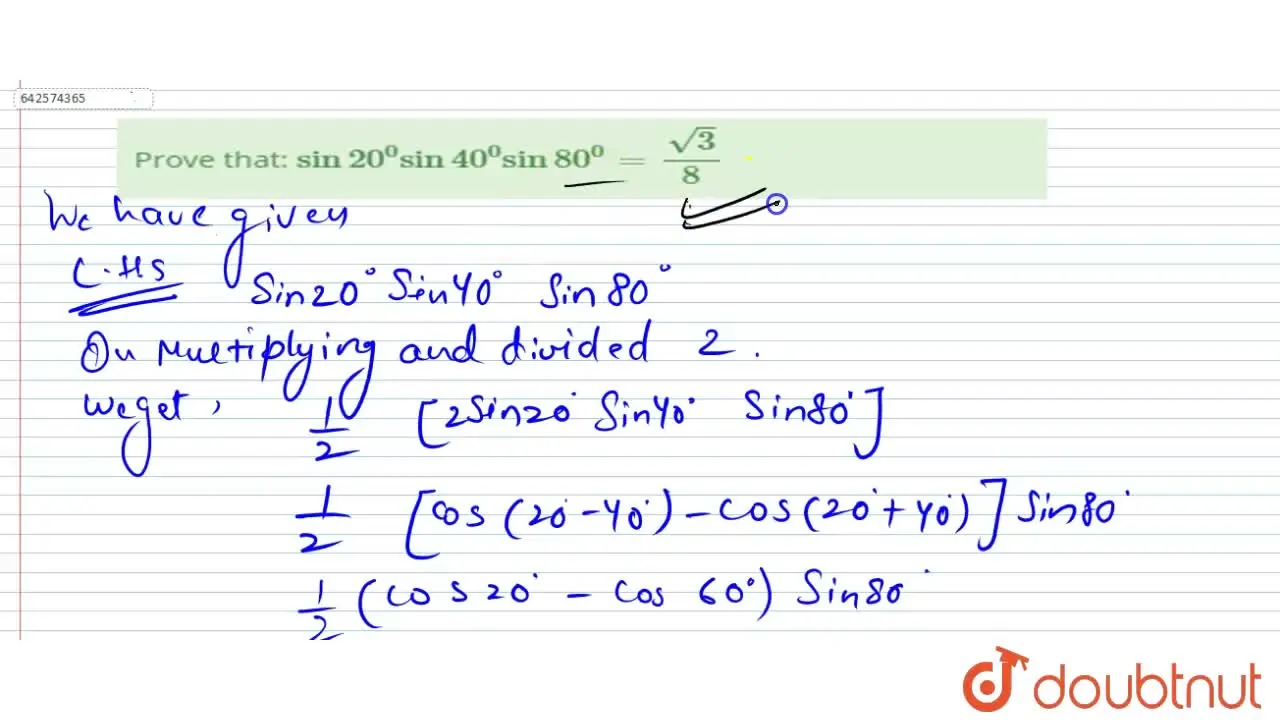 642574365
Prove that: sin 20⁰ sin 40⁰ sin 80⁰ = √3/8
We have given
L.HS Sin20° Sin40° Sin80°
On Multiplying and divided 2.
We get, 1/2 [2Sin20° Sin40° Sin80°]
1/2 [Cos(20°-40°) - Cos(20°+40°)] Sin80°
1/2 (Cos20° - Cos 60°) Sin80°
doubtnut